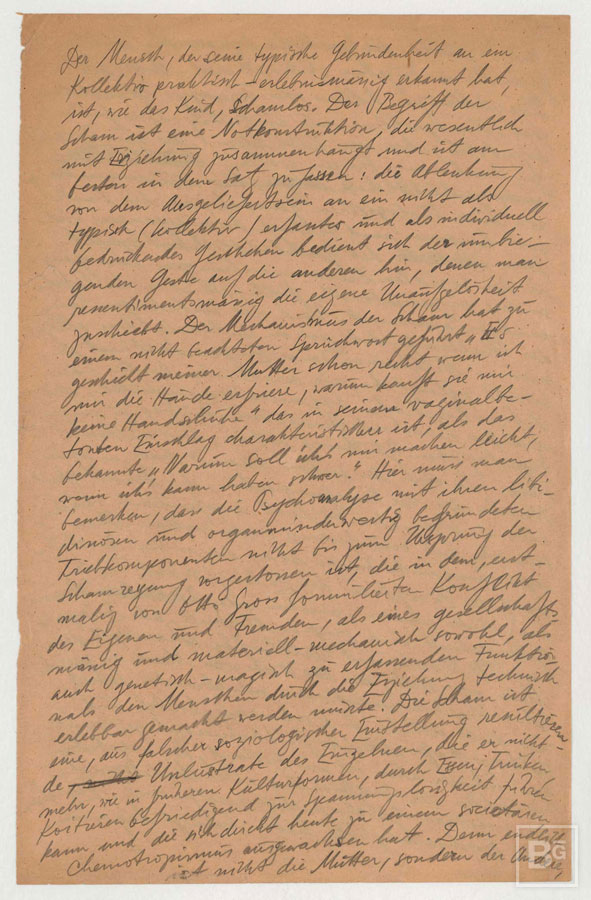 Der Mensch, der seine typische Gebundenheit an ein
Kollektiv praktisch-erlebnismässig erkannt hat,
ist, wie das Kind, schamlos. Der Begriff der
Scham ist eine Notkonstruktion, die wesentlich
mit Erziehung zusammenhängt und ist am
besten in dem Satz zu fassen: die Ablenkung
von dem Ausgeliefertsein an ein nicht als
typisch (kollektiv) erfasstes und als individuell
bedrückendes Geschehen bedient sich der umbie-
genden Geste auf die anderen hin, denen man
ressentimentsmässig die eigene Unaufgelöstheit
zuschiebt. Der Mechanismus der Scham hat zu
einem nicht beachteten Sprichwort geführt „Es
geschieht meiner Mutter schon recht wenn ich
mir die Hände erfriere, warum kauft sie mir
keine Handschuhe“ das in seinem vaginalbe-
tonten Einschlag charakteristischer ist, als das
bekannte „Warum soll ich's mir machen leicht,
wenn ich's kann haben schwer.“ Hier muss man
bemerken, dass die Psychoanalyse mit ihren libi-
dinösen und organminderwertig begründeten
Triebkomponenten nicht bis zum Ursprung der
Schamregung vorgestossen ist, die in dem, erst-
malig von Otto Gross formulierten Konflikt
des Eigenen und Fremden, als eines gesellschafts-
mässig und materiell-mechanisch sowohl, als
auch genetisch-magisch zu erfassenden Funktio-
nals den Menschen durch die Erziehung technisch
erlebbar gemacht werden musste. Die Scham ist
eine, aus falscher soziologischer Einstellung resultieren-
de Unlustrate des Einzelnen, die er nicht
mehr, wie in früheren Kulturformen, durch Trinken
Koitieren befriedigend zur Spannungslosigkeit führen
kann und die sich direkt heute zu einem societären
Chemotropismus ausgewachsen hat. Denn
ist nicht die Mutter, sondern der
BG